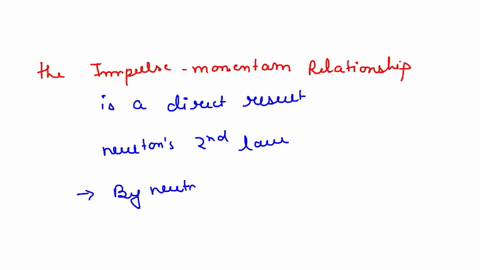 the Impulse - momentam Relationship
is a direct result
newton's 2nd law
→ By newtn